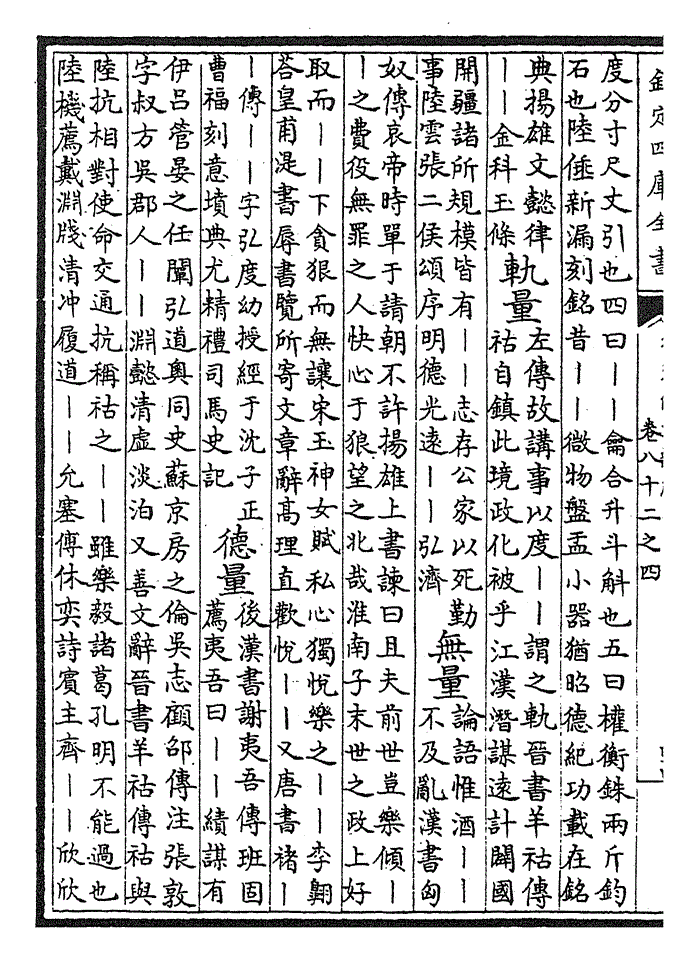 欽定四庫全書
卷八十二之四
度分寸尺丈引也四曰||龠合升斗斛也五曰權衡銖兩斤鈞
石也陸倕新漏刻銘昔||微物盤盂小器猶昭德紀功載在銘
典揚雄文懿律
||金科玉條
軌量
左傳故講事以度||謂之軌晉書羊祜傳
祜自鎮此境政化被乎江漢潛謀遠計闢國
開疆諸所規模皆有||志存公家以死勤
事陸雲張二侯頌序明德光遠||弘濟
無量
論語惟酒||
不及亂漢書匈
奴傳哀帝時單于請朝不許揚雄上書諫曰且夫前世豈樂傾|
|之費役無罪之人快心于狼望之北哉淮南子末世之政上好
取而||下貪狠而無讓宋玉神女賦私心獨悅樂之||李翺
答皇甫湜書辱書覽所寄文章辭高理直歡悅||又唐書褚|
|傳||字弘度幼授經于沈子正
曹福刻意墳典尤精禮司馬史記
德量
後漢書謝夷吾傳班固
薦夷吾曰||績謀有
伊呂管晏之任闡弘道奧同史蘇京房之倫吳志顧邵傳注張敦
字叔方吳郡人||淵懿清虛淡泊又善文辭晉書羊祜傳祜與
陸抗相對使命交通抗稱祜之||雖樂毅諸葛孔明不能過也
陸機薦戴淵牋清冲履道||允塞傅休奕詩賓主齊||欣欣